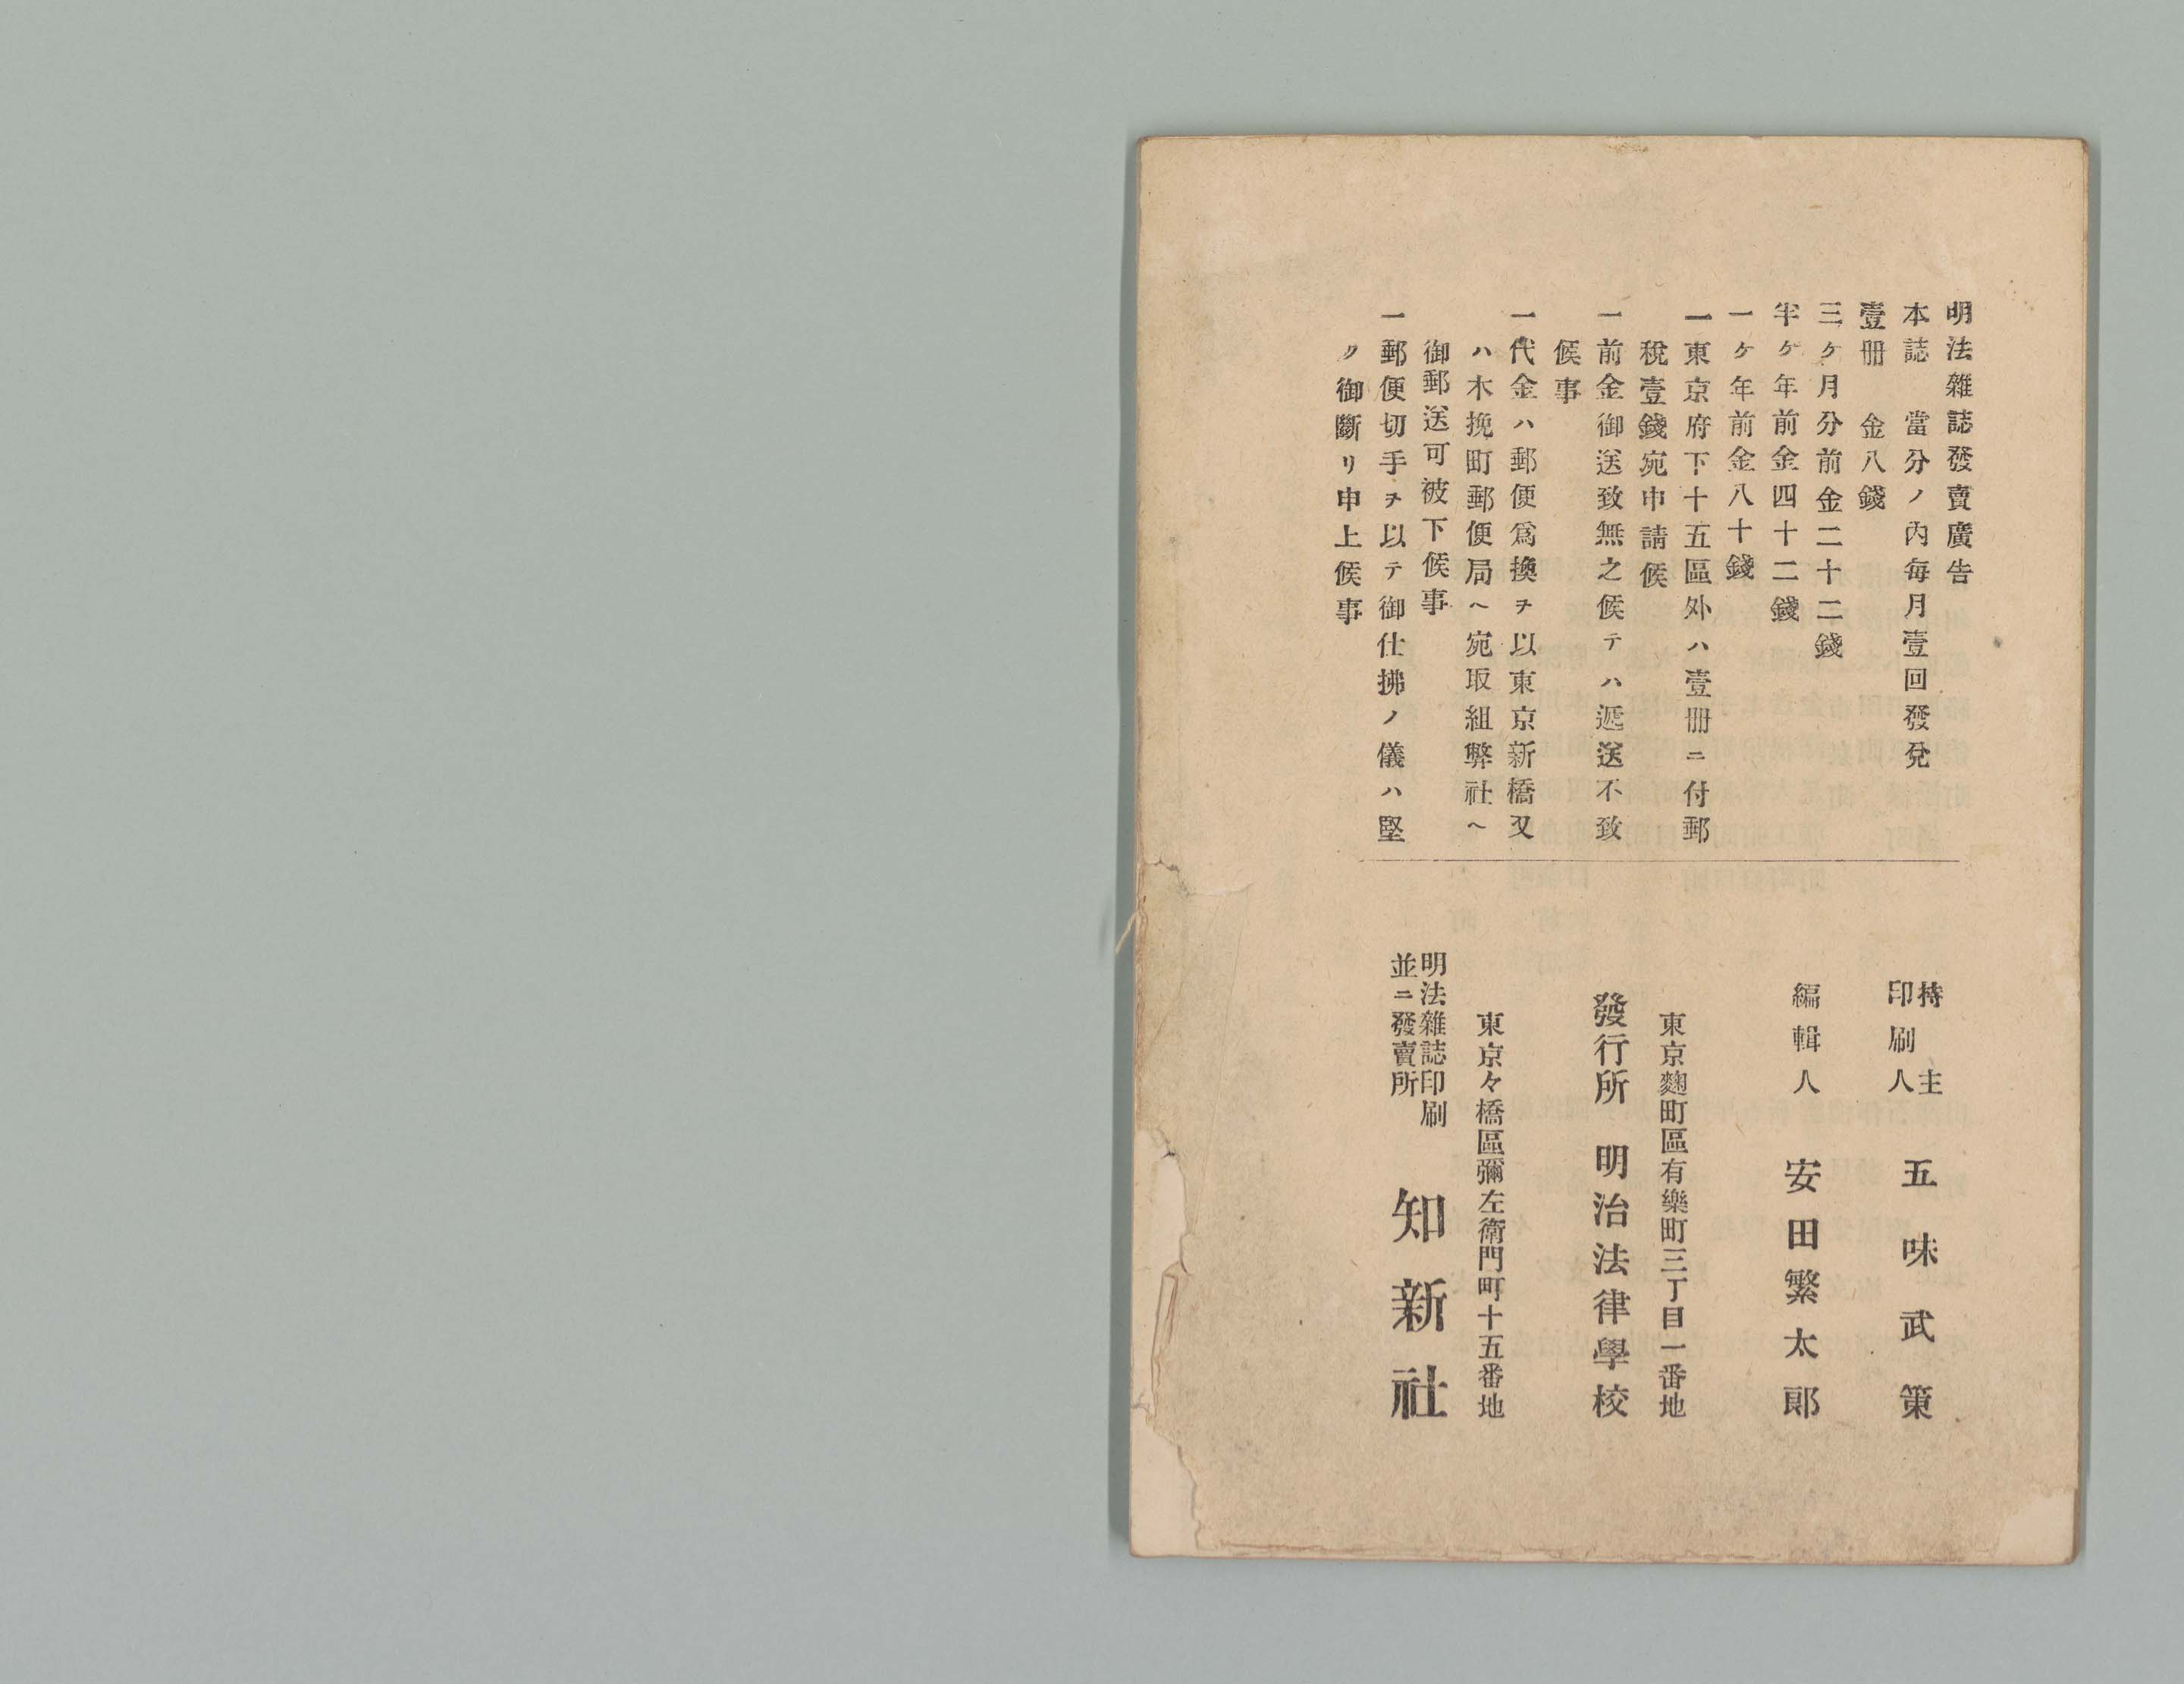 明法雜誌發賣廣告
本誌　當分ノ內每月壹回發兌
壹冊　金八錢
三ケ月分前金二十二錢
半ケ年前金四十二錢
一ケ年前金八十錢
一東京府下十五區外ハ壹冊ニ付郵
稅壹錢宛申請候
一前金御送致無之候テハ遞送不致
候事
一代金ハ郵便爲換ヲ以東京新橋又
ハ木挽町郵便局ヘ宛取組弊社ヘ
御郵送可被下候事
一郵便切手ヲ以テ御仕拂ノ儀ハ堅
ク御斷リ申上候事
持主
印刷人
五味武策
編輯人　安田繁太郞
東京麴町區有樂町三丁目一番地
發行所　明治法律學校
東京々橋區彌左衛門町十五番地
明法雜誌印刷
並ニ發賣所
知新社